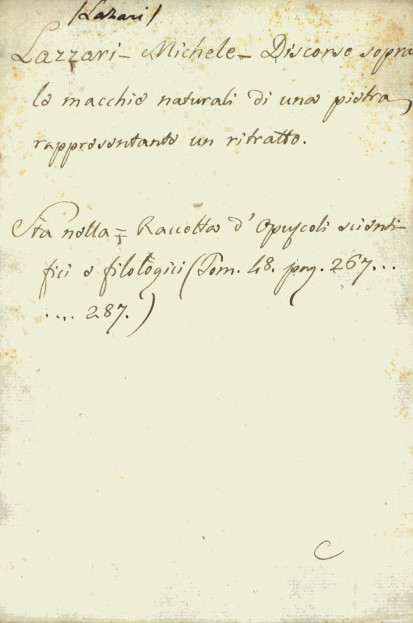 /Lazari/
Lazzari - Michele - Discorso sopra
le macchie naturali di una pietra,
rappresentante un ritratto.
Sta nella = Raccolta d'Opuscoli scienti-
fici e filologici (Tom. 48. pag. 267...
.... 287.)
C